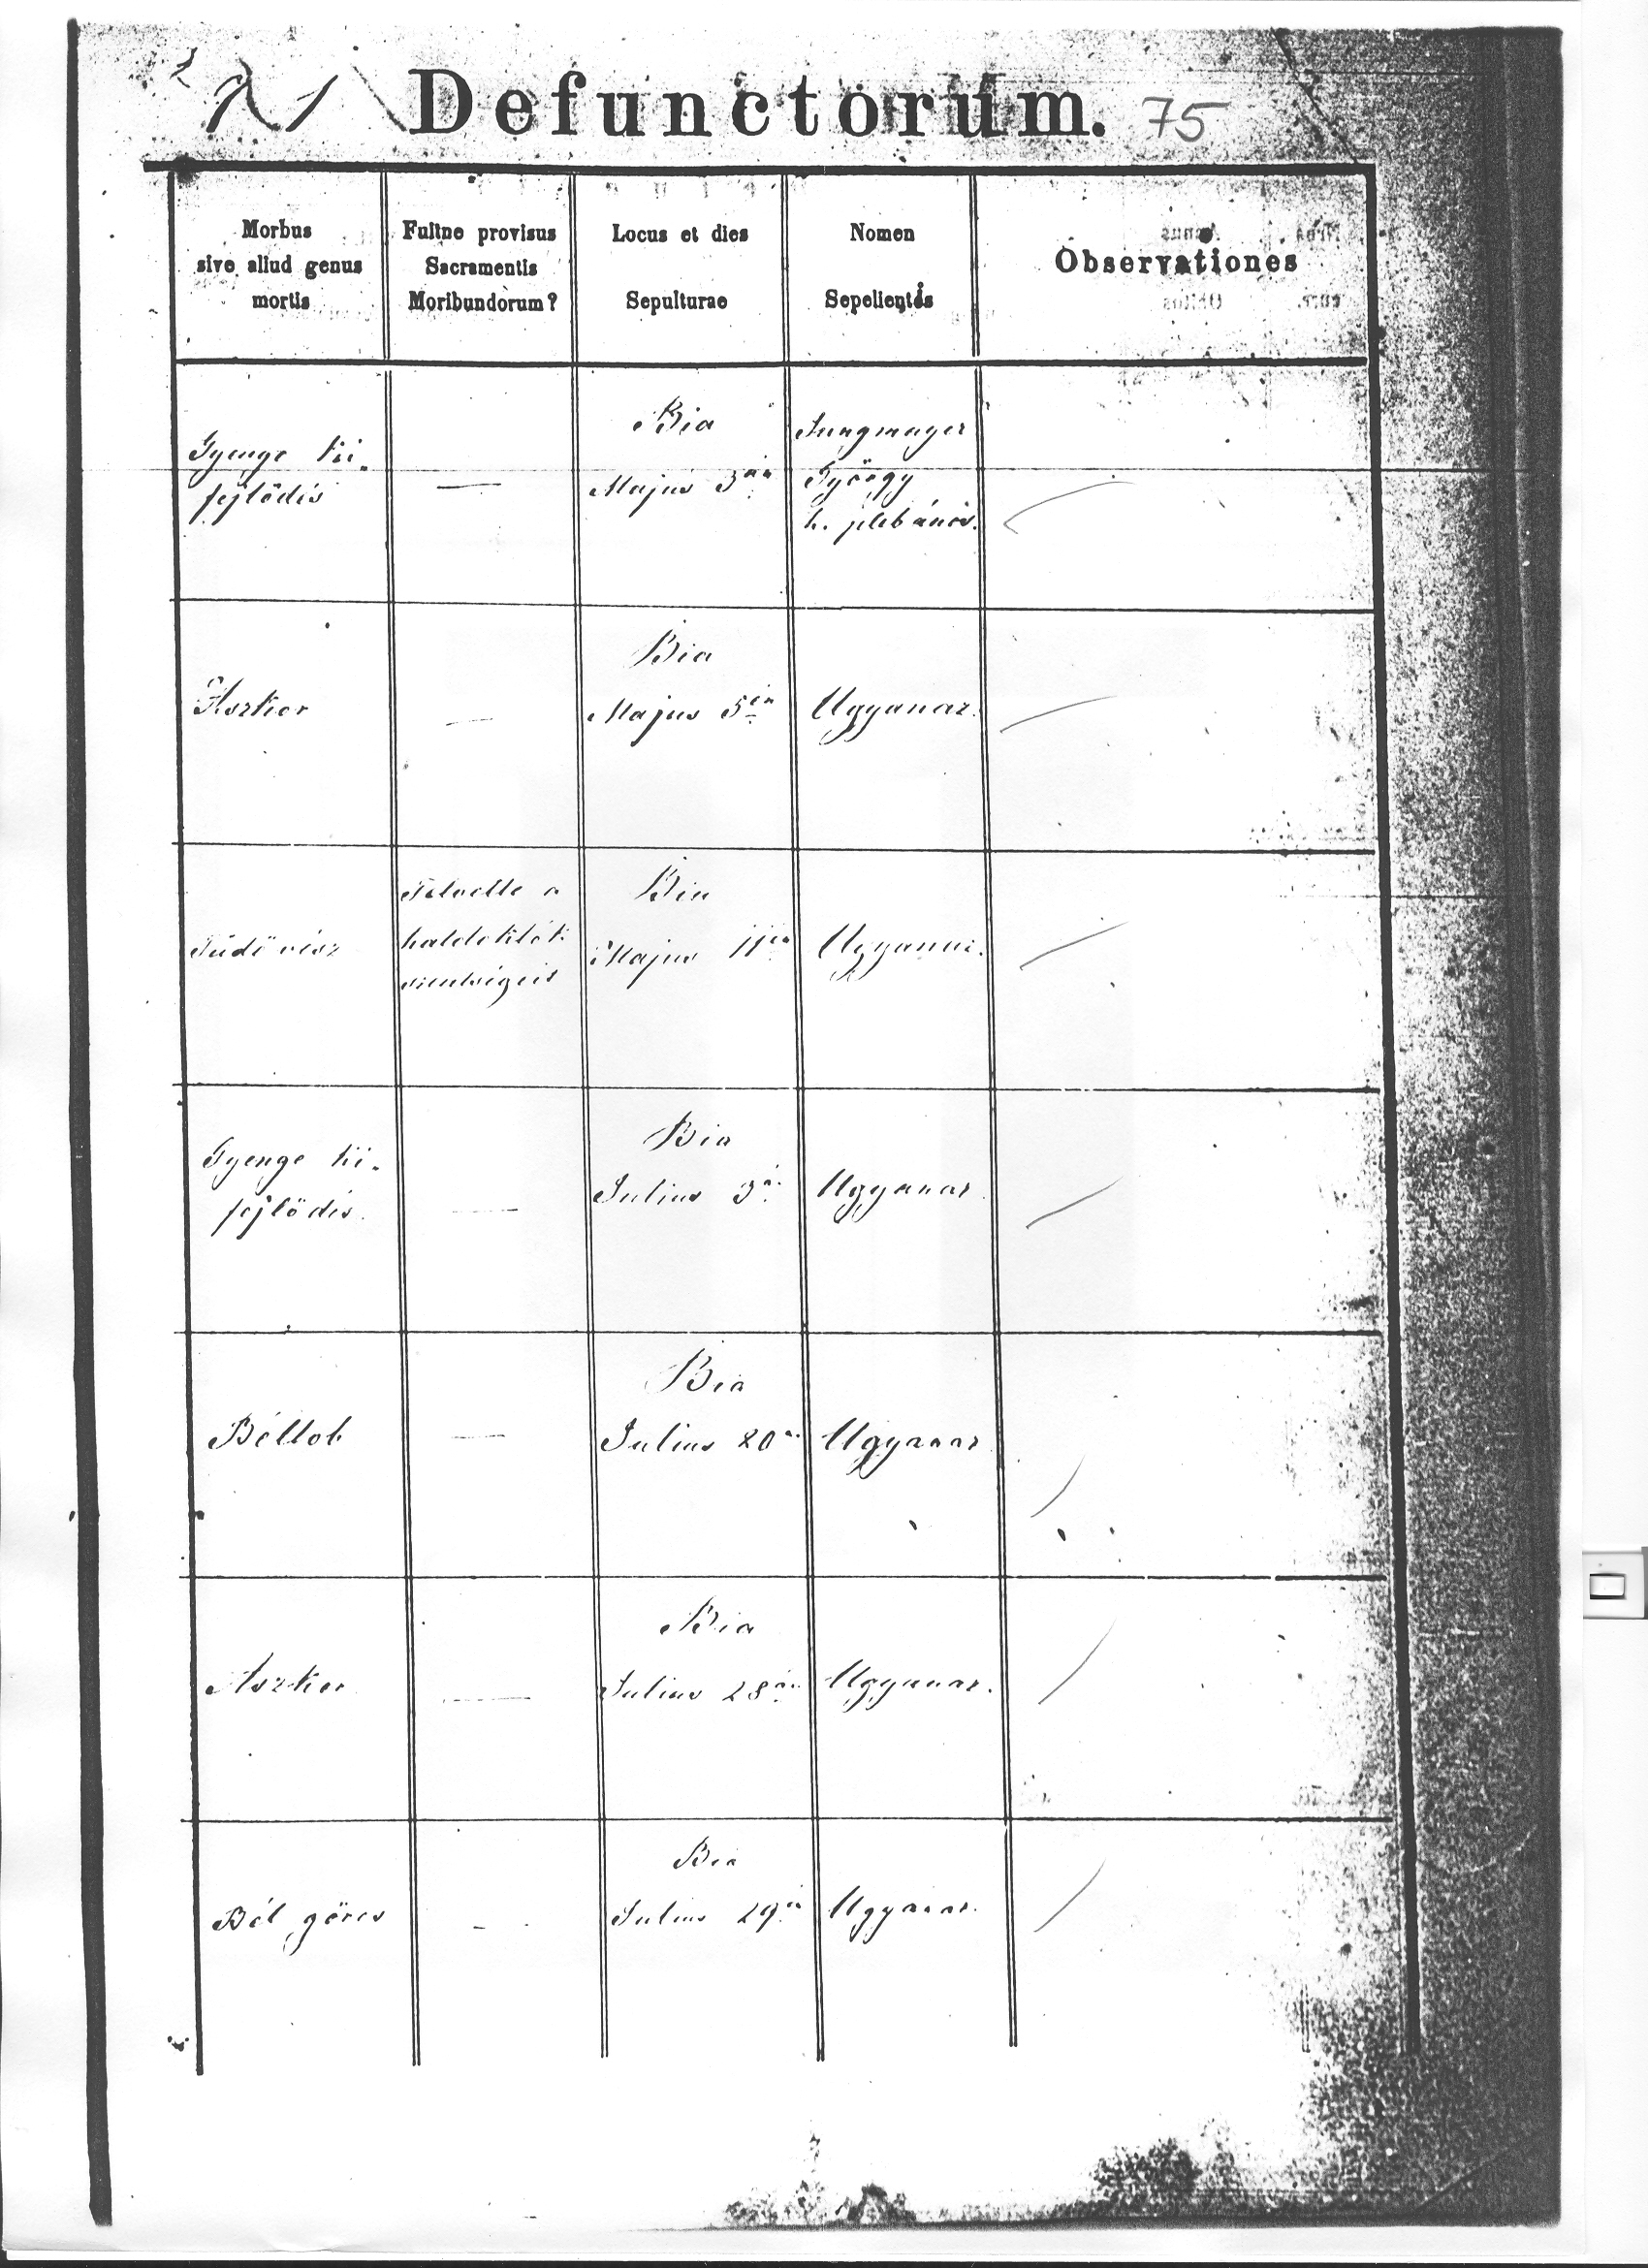 71 Defunctorum. 75
Morbus
sive aliud genus
mortis
Fuitne provisus
Sacramentis
Moribundorum?
Locus et dies
Sepulturae
Nomen
Sepelientis
Observationes
Gyenge ki-
fejlődés
—
Bia
Majus 3án
Jungmayer
György
h. plebános.
Aszkor
—
Bia
Majus 5én
Ugyanaz.
Tüdővész
Felvette a
haldoklók
szentségeit
Bia
Majus 11én
Ugyanaz.
Gyenge ki-
fejlődés.
—
Bia
Julius 3án
Ugyanaz
Béllob
—
Bia
Julius 20án
Ugyanaz
Aszkor
—
Bia
Julius 28án
Ugyanaz.
Bél görcs
—
Bia
Julius 29én
Ugyanaz.